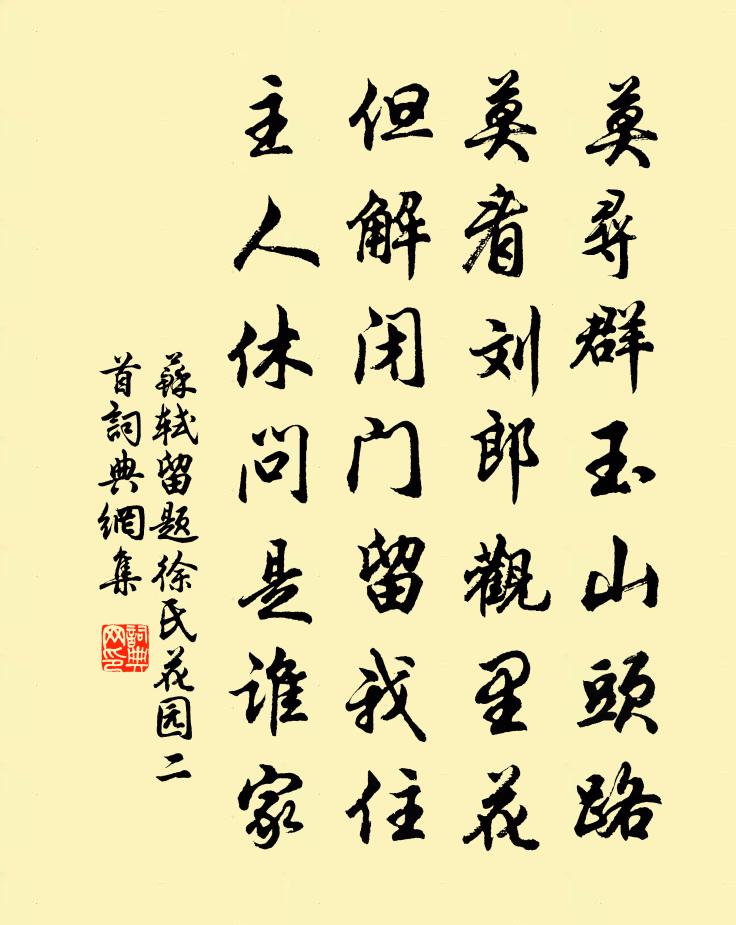 莫尋群玉山頭路
莫看刘郎觀里花
但解闭门留我住
主人休问是谁家
蘇軾留题徐氏花园二
首詞典網集
詞典
网印